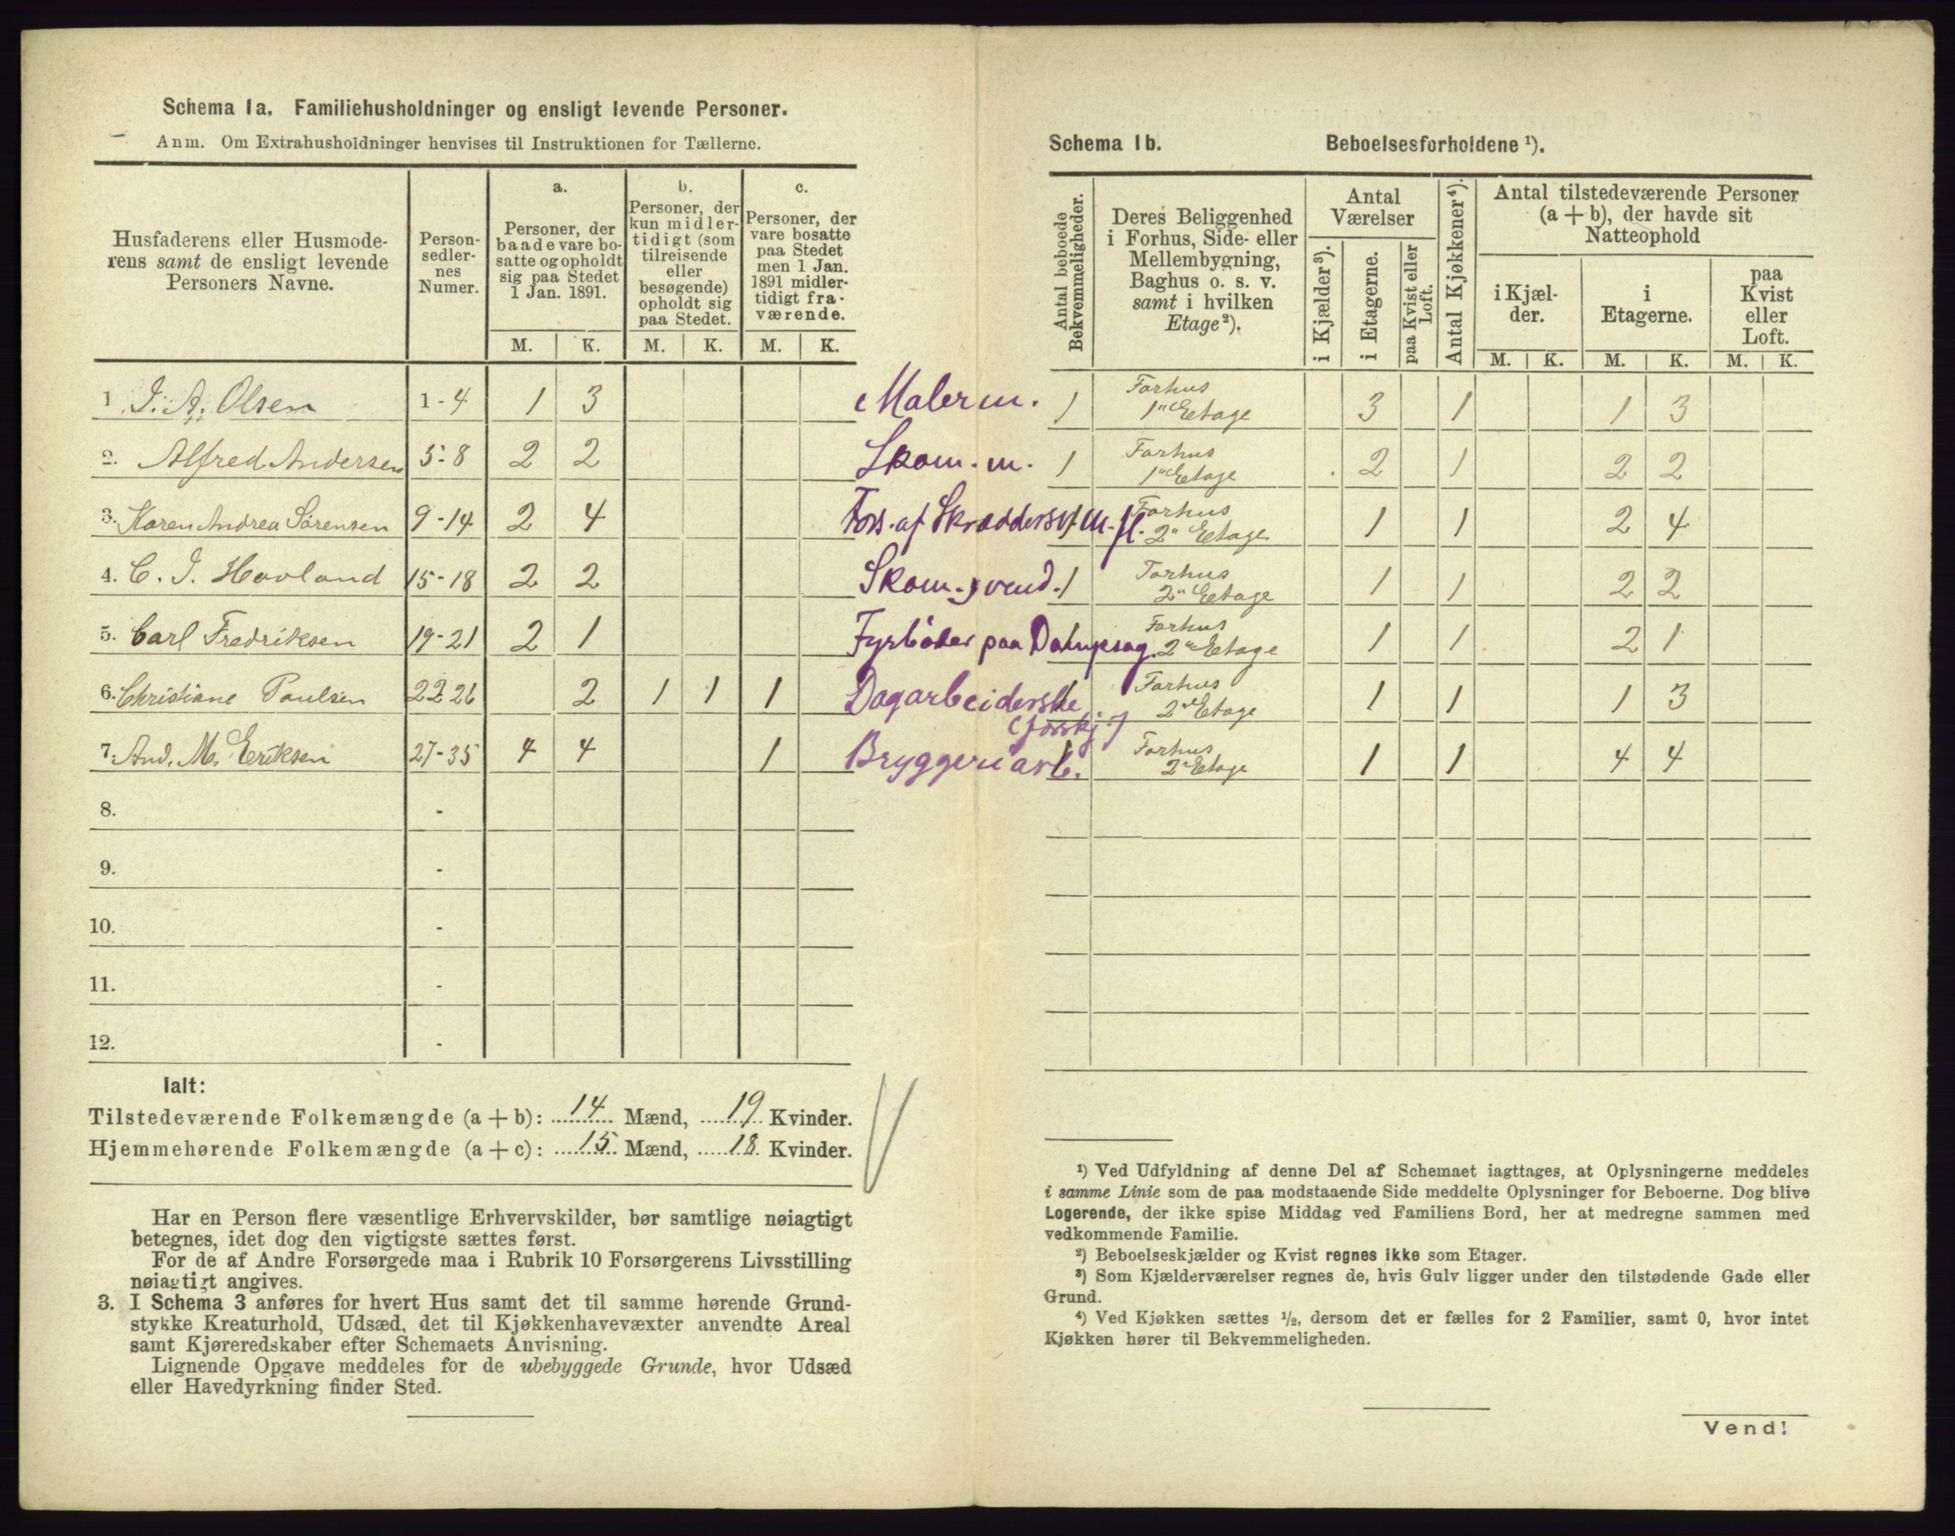 Schema 1a. Familiehusholdninger og ensligt levende Personer.
Anm. Om Extrahusholdninger henvises til Instruktionen for Tællerne.
Husfaderens eller Husmode-
rens samt de ensligt levende
Personers Navne.
Person-
sedler-
nes
Numer.
a.
Personer, der
baade vare bo-
satte og opholdt
sig paa Stedet
1 Jan. 1891.
b.
Personer, der
kun midler-
tidigt (som
tilreisende
eller
besøgende)
opholdt sig
paa Stedet.
c.
Personer, der
vare bosatte
paa Stedet
men 1 Jan.
1891 midler-
tidigt fra-
værende.
M. K. M. K. M. K.
1 J. A. Olsen 1-4 1 3 Malerm.
2. Alfred Andersen 5-8 2 2 Skom. m.
3. Karen Andrea Sørensen 9-14 2 4 Fors. af Skræddersv. m. fl.
4. C. J. Hovland 15-18 2 2 Skom. svend.
5. Carl Fredriksen 19-21 2 1 Fyrbøder paa Dampsag.
6. Christiane Paulsen 22-26 2 1 1 1 Dagarbeiderske
(forskj.)
7. And. M. Eriksen 27-35 4 4 1 Bryggeriarb.
8. -
9. -
10. -
11. -
12. -
Ialt:
Tilstedeværende Folkemængde (a + b): 14 Mænd, 19 Kvinder.
Hjemmehørende Folkemængde (a + c): 15 Mænd, 18 Kvinder.
Har en Person flere væsentlige Erhvervskilder, bør samtlige nøiagtigt
betegnes, idet dog den vigtigste sættes først.
For de af Andre Forsørgede maa i Rubrik 10 Forsørgerens Livsstilling
nøiagtigt angives.
3. I Schema 3 anføres for hvert Hus samt det til samme hørende Grund-
stykke Kreaturhold, Udsæd, det til Kjøkkenhavevæxter anvendte Areal
samt Kjøreredskaber efter Schemaets Anvisning.
Lignende Opgave meddeles for de ubebyggede Grunde, hvor Udsæd
eller Havedyrkning finder Sted.
Schema 1b. Beboelsesforholdene ¹).
Antal beboede
Bekvemmeligheder.
Deres Beliggenhed
i Forhus, Side- eller
Mellembygning,
Baghus o. s. v.
samt i hvilken
Etage²).
Antal
Værelser
i Kjælder³).
i Etagerne.
paa Kvist eller
Loft.
Antal Kjøkkener⁴).
Antal tilstedeværende Personer
(a + b), der havde sit
Natteophold
i Kjæl-
der.
i
Etagerne.
paa
Kvist
eller
Loft.
M. K. M. K. M. K.
1 Forhus
1ste Etage 3 1 1 3
1 Forhus
1ste Etage 2 1 2 2
1 Forhus
2" Etage 1 1 2 4
1 Forhus
2" Etage 1 1 2 2
Forhus
2" Etage 1 1 2 1
1 Forhus
2" Etage 1 1 1 3
1 Forhus
2" Etage 1 1 4 4
¹) Ved Udfyldning af denne Del af Schemaet iagttages, at Oplysningerne meddeles
i samme Linie som de paa modstaaende Side meddelte Oplysninger for Beboerne. Dog blive
Logerende, der ikke spise Middag ved Familiens Bord, her at medregne sammen med
vedkommende Familie.
²) Beboelseskjælder og Kvist regnes ikke som Etager.
³) Som Kjælderværelser regnes de, hvis Gulv ligger under den tilstødende Gade eller
Grund.
⁴) Ved Kjøkken sættes ½, dersom det er fælles for 2 Familier, samt 0, hvor intet
Kjøkken hører til Bekvemmeligheden.
Vend!